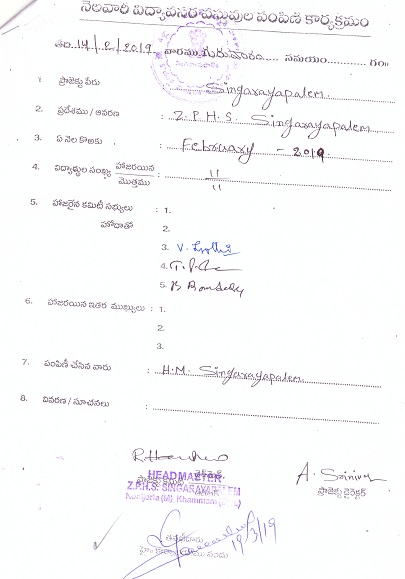 నెలవారీ విద్యావసర వస్తువుల పంపిణీ కార్యక్రమం
తేది. 14/2/2019 వారము గురువారం సమయం గం॥
1. ప్రాజెక్టు పేరు : Singarayapalem.
2. ప్రదేశము / ఆవరణ : Z.P.H.S. Singarayapalem
3. ఏ నెల కొఱకు : February - 2019
4. విద్యార్థుల సంఖ్య హాజరయిన / మొత్తము : 11 / 11
5. హాజరైన కమిటీ సభ్యులు : 1.
హోదాతో 2.
3. V. Jyothi
4.
5.
6. హాజరయిన ఇతర ముఖ్యులు : 1.
2.
3.
7. పంపిణీ చేసిన వారు : H.M. Singarayapalem.
8. వివరణ / సూచనలు :
HEADMASTER
Z.P.H.S. SINGARAYAPALEM
A. Sriniv
ప్రాజెక్టు డైరెక్టర్
19/3/19